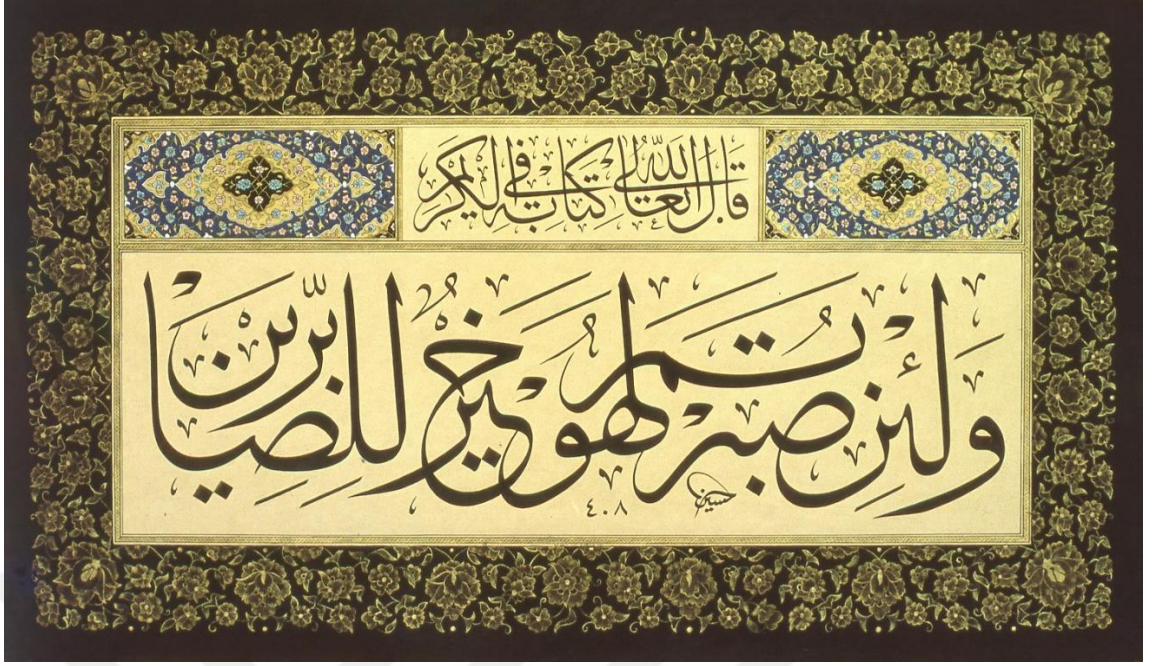 قَالَ اللّٰهُ تَعَالَى فِي كِتَابِهِ الْكَرِيمِ
وَلَئِنْ صَبَرْتُمْ لَهُوَ خَيْرٌ لِلصَّابِرِينَ
حسين
٤٠٨